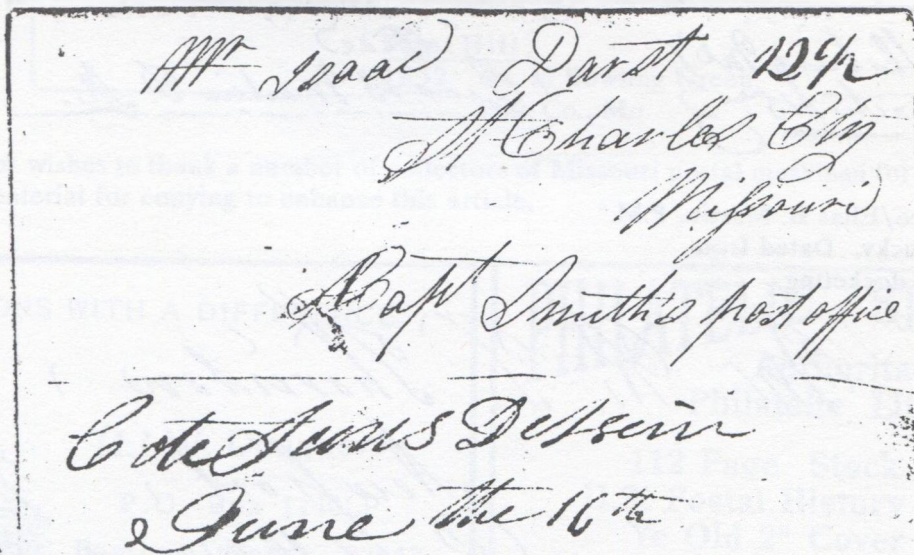 Mr Isaac Darst 12½
St Charles Cty
Missouri
Capt Smith's post office
Cote Sans Dessein
June the 16th